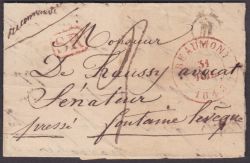 Recommandé
Monsieur
De Haussy avocat
Sénateur
pressé fontaine l'evêque
BEAUMONT
31
184